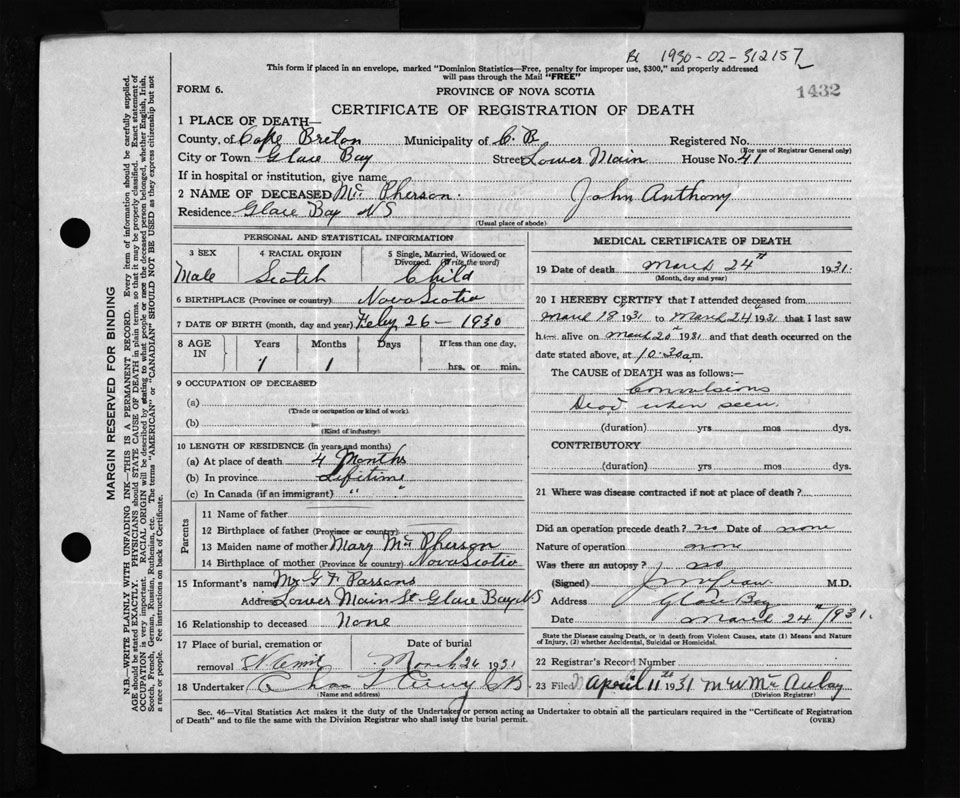 Bk 1930-02-312157
This form if placed in an envelope, marked "Dominion Statistics—Free, penalty for improper use, $300," and properly addressed
will pass through the Mail "FREE"
FORM 6.
PROVINCE OF NOVA SCOTIA
1432
CERTIFICATE OF REGISTRATION OF DEATH
1 PLACE OF DEATH—
County of Cape Breton Municipality of C. B. Registered No.
(For use of Registrar General only)
City or Town Glace Bay Street Lower Main House No. 41
If in hospital or institution, give name
2 NAME OF DECEASED Mc Pherson. John Anthony
Residence Glace Bay NS
(Usual place of abode)
PERSONAL AND STATISTICAL INFORMATION
3 SEX 4 RACIAL ORIGIN 5 Single, Married, Widowed or
Divorced. (Write the word)
Male Scotch Child
6 BIRTHPLACE (Province or country) Nova Scotia
7 DATE OF BIRTH (month, day and year) Feby 26 - 1930
8 AGE IN Years Months Days If less than one day,
1 1 hrs. or min.
9 OCCUPATION OF DECEASED
(a)
(Trade or occupation or kind of work)
(b)
(Kind of industry)
10 LENGTH OF RESIDENCE (In years and months)
(a) At place of death 4 Months
(b) In province Lifetime
(c) In Canada (if an immigrant) " "
Parents
11 Name of father
12 Birthplace of father (Province or country)
13 Maiden name of mother Mary Mc Pherson
14 Birthplace of mother (Province or country) Nova Scotia
15 Informant's name Mr G F Parsons
Address Lower Main St Glace Bay NS
16 Relationship to deceased None
17 Place of burial, cremation or Date of burial
removal March 26 1931
18 Undertaker
(Name and address)
MEDICAL CERTIFICATE OF DEATH
19 Date of death March 24th 1931.
(Month, day and year)
20 I HEREBY CERTIFY that I attended deceased from
March 18 1931 to March 24th 1931 that I last saw
h alive on March 20 1931 and that death occurred on the
date stated above, at 10.30 a.m.
The CAUSE of DEATH was as follows:—
Convulsions
Dead when seen.
(duration) yrs mos dys.
CONTRIBUTORY
(duration) yrs mos dys.
21 Where was disease contracted if not at place of death?
Did an operation precede death? no Date of none
Nature of operation none
Was there an autopsy? no
(Signed) M.D.
Address Glace Bay
Date March 24th 1931.
State the Disease causing Death, or in death from Violent Causes, state (1) Means and Nature
of Injury, (2) whether Accidental, Suicidal or Homicidal.
22 Registrar's Record Number
23 Filed April 11th 1931 M W McAulay
(Division Registrar)
Sec. 46—Vital Statistics Act makes it the duty of the Undertaker or person acting as Undertaker to obtain all the particulars required in the "Certificate of Registration
of Death" and to file the same with the Division Registrar who shall issue the burial permit.
(OVER)
MARGIN RESERVED FOR BINDING
N.B.—WRITE PLAINLY WITH UNFADING INK—THIS IS A PERMANENT RECORD. Every item of information should be carefully supplied.
AGE should be stated EXACTLY. PHYSICIANS should STATE CAUSE OF DEATH in plain terms, so that it may be properly classified. Exact statement of
OCCUPATION is very important. RACIAL ORIGIN will be described by stating to what people or race the deceased person belonged, whether English, Irish,
Scotch, French, German, Russian, Ruthenian, etc. The terms "AMERICAN" or "CANADIAN" SHOULD NOT BE USED as they express citizenship but not
a race or people. See instructions on back of Certificate.